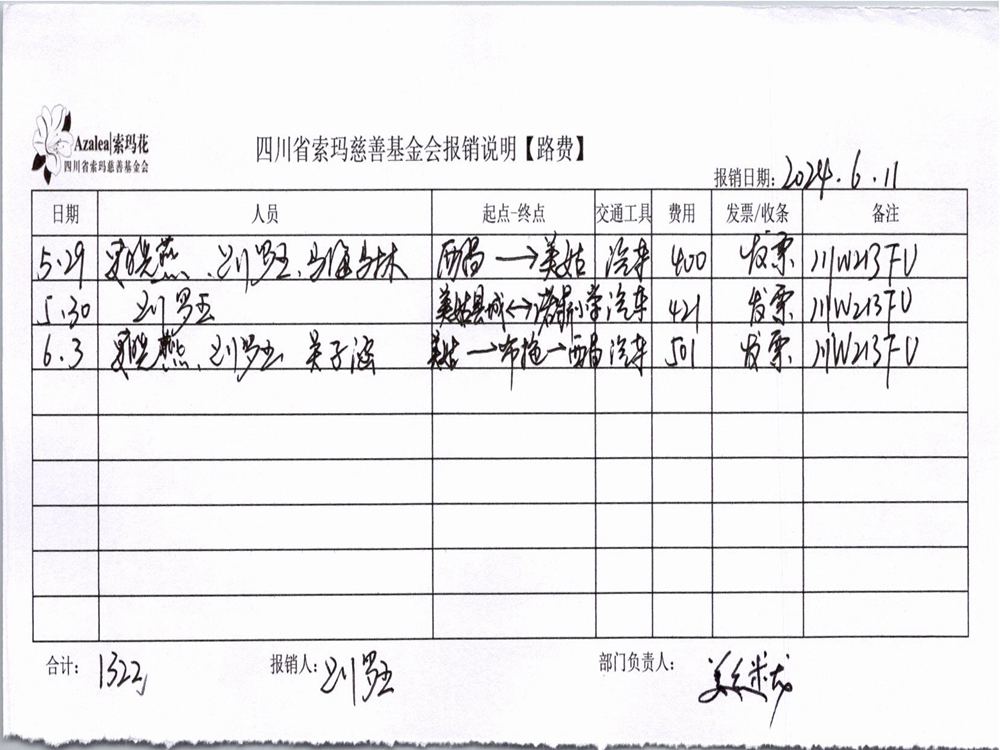 Azalea|索玛花
四川省索玛慈善基金会
四川省索玛慈善基金会报销说明【路费】
报销日期: 2024.6.11
日期 人员 起点-终点 交通工具 费用 发票/收条 备注
5.29 晓燕、刘罗玉、马海 西昌→美姑 汽车 400 发票 川W213FU
5.30 刘罗玉 美姑县城↔小学 汽车 421 发票 川W213FU
6.3 晓燕、刘罗玉 吴子涵 美姑→布拖→西昌 汽车 501 发票 川W213FU
合计: 1322 报销人: 刘罗玉 部门负责人: